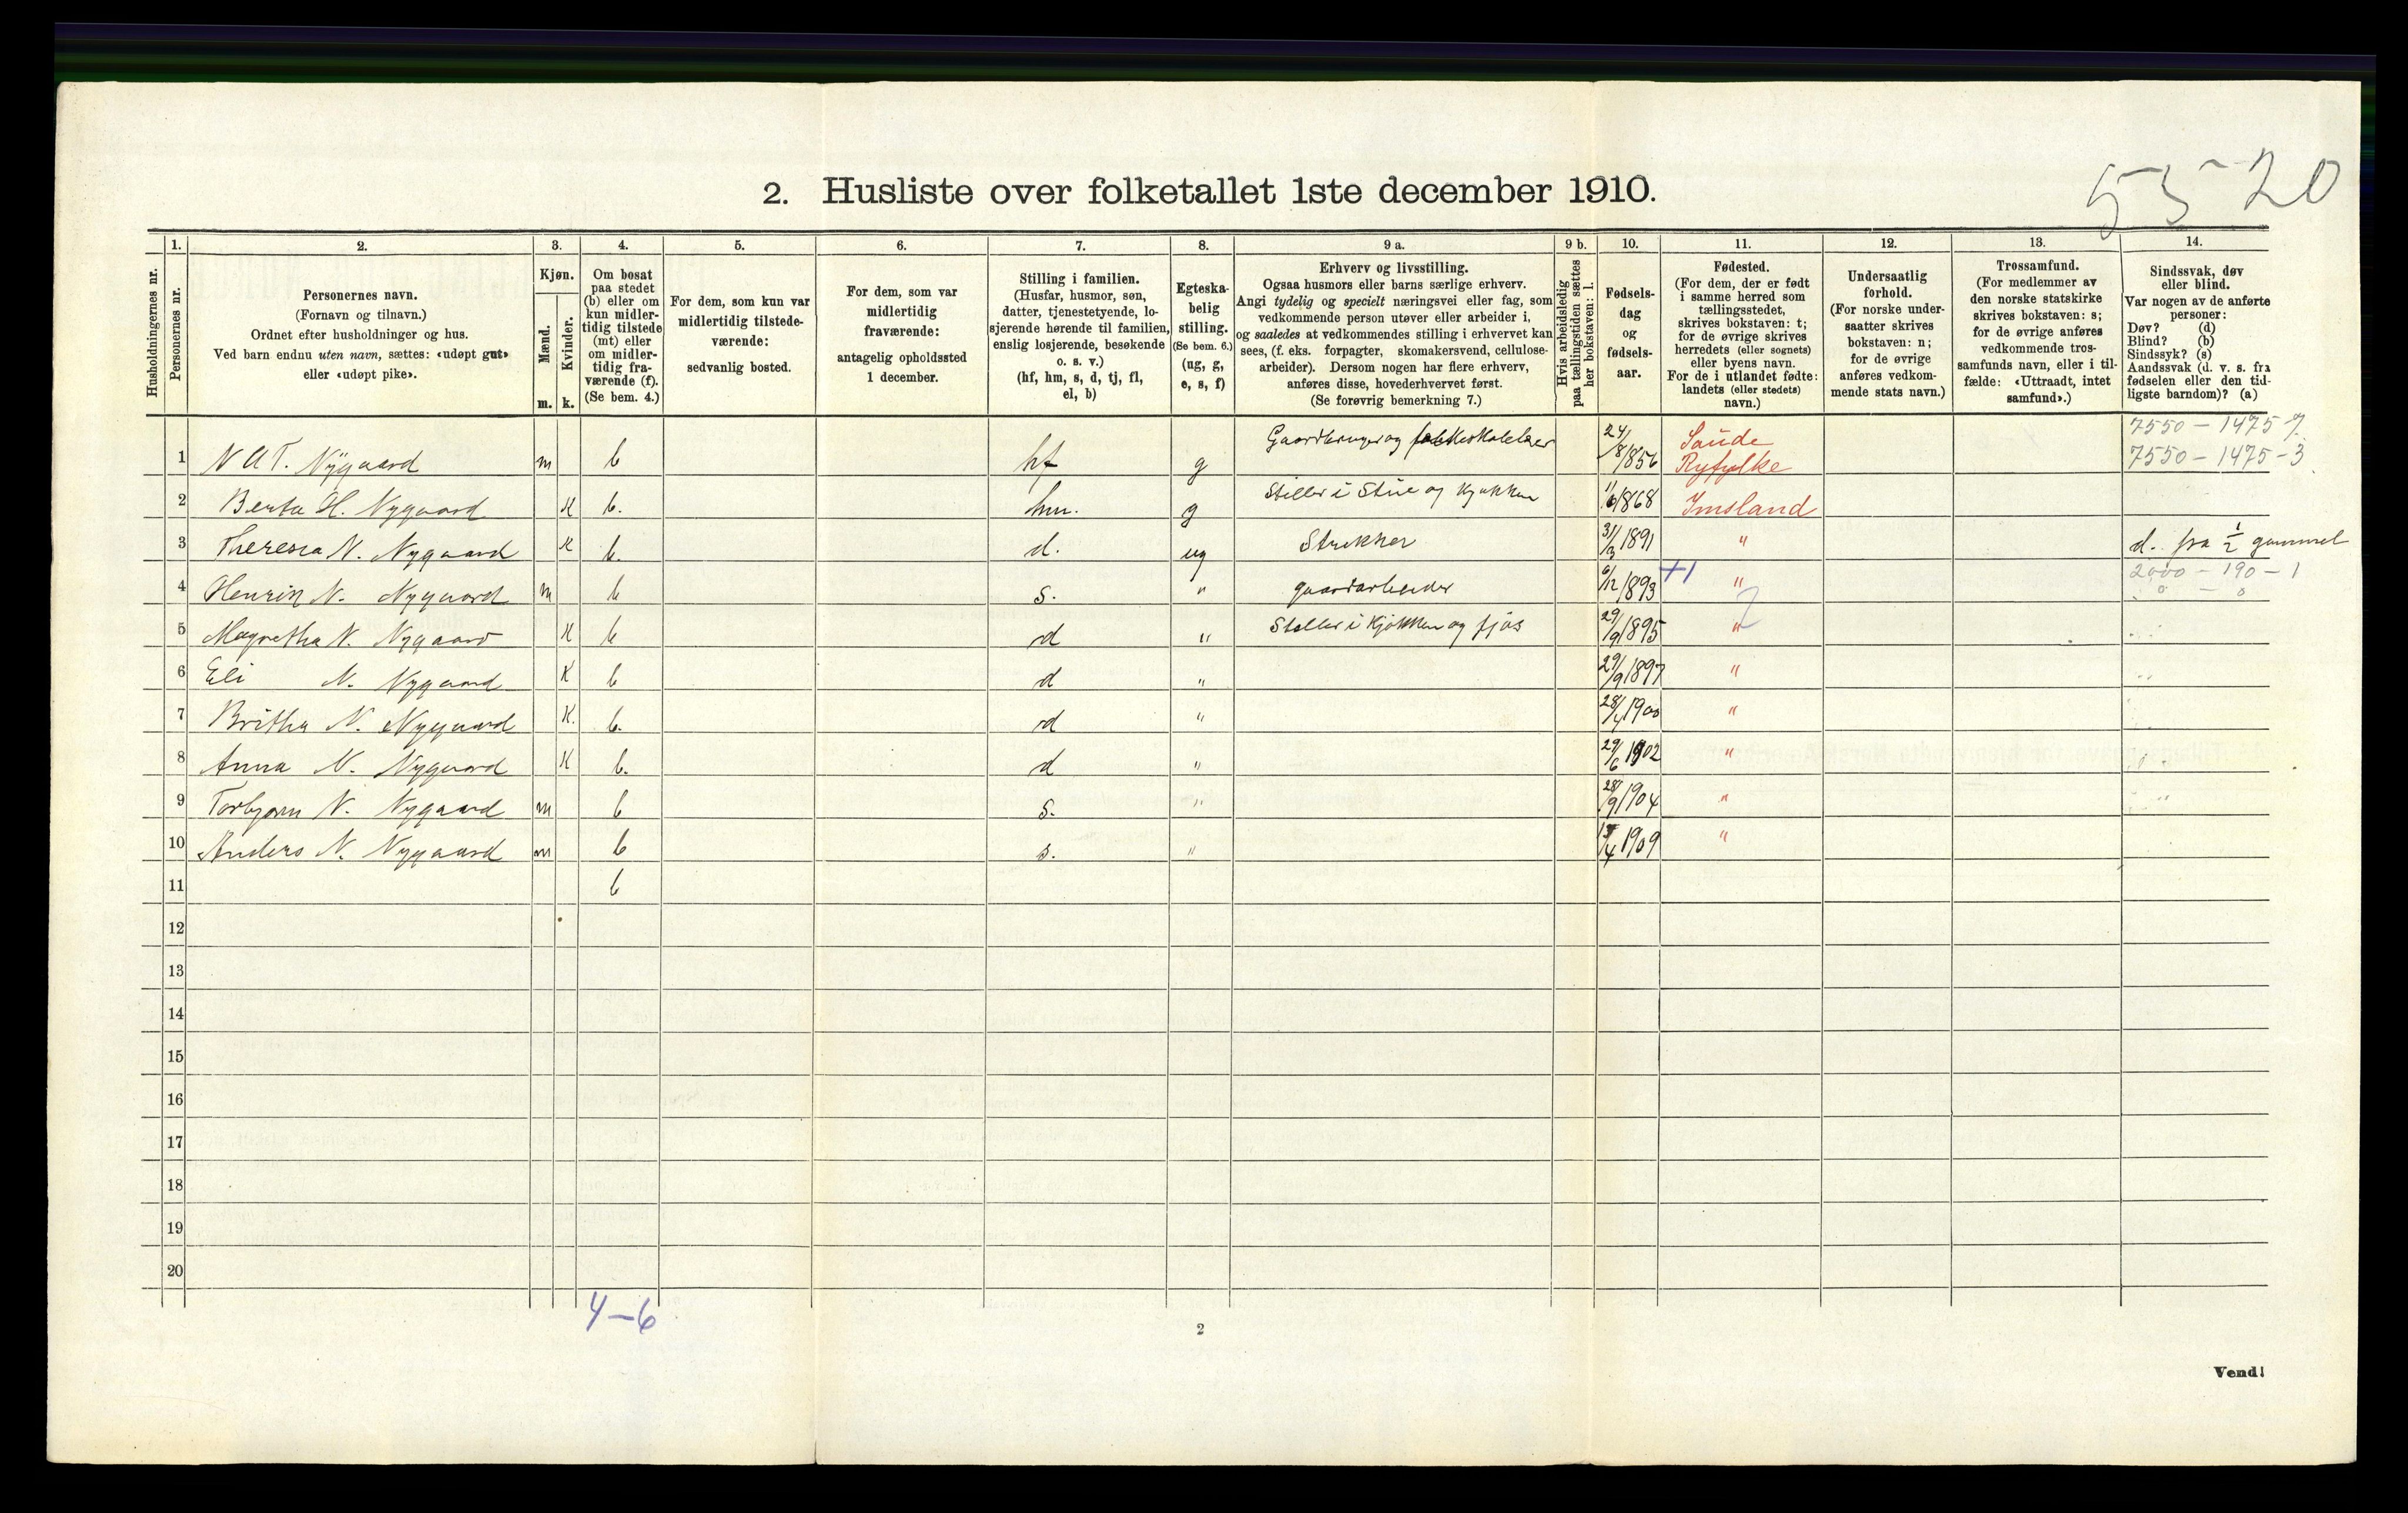 53-20
2. Husliste over folketallet 1ste december 1910.
Husholdningernes nr.
1. Personernes nr.
2. Personernes navn.
(Fornavn og tilnavn.)
Ordnet efter husholdninger og hus.
Ved barn endnu uten navn, sættes: «udøpt gut»
eller «udøpt pike».
3. Kjøn.
Mænd. m.
Kvinder. k.
4. Om bosat
paa stedet
(b) eller om
kun midler-
tidig tilstede
(mt) eller
om midler-
tidig fra-
værende (f).
(Se bem. 4.)
5. For dem, som kun var
midlertidig tilstede-
værende:
sedvanlig bosted.
6. For dem, som var
midlertidig
fraværende:
antagelig opholdssted
1 december.
7. Stilling i familien.
(Husfar, husmor, søn,
datter, tjenestetyende, lo-
sjerende hørende til familien,
enslig losjerende, besøkende
o. s. v.)
(hf, hm, s, d, tj, fl,
el, b)
8. Egteska-
belig
stilling.
(Se bem. 6.)
(ug, g,
e, s, f)
9 a. Erhverv og livsstilling.
Ogsaa husmors eller barns særlige erhverv.
Angi tydelig og specielt næringsvei eller fag, som
vedkommende person utøver eller arbeider i,
og saaledes at vedkommendes stilling i erhvervet kan
sees, (f. eks. forpagter, skomakersvend, cellulose-
arbeider). Dersom nogen har flere erhverv,
anføres disse, hovederhvervet først.
(Se forøvrig bemerkning 7.)
9 b. Hvis arbeidsledig
paa tællingstiden sættes
her bokstaven: l.
10. Fødsels-
dag
og
fødsels-
aar.
11. Fødested.
(For dem, der er født
i samme herred som
tællingsstedet,
skrives bokstaven: t;
for de øvrige skrives
herredets (eller sognets)
eller byens navn.
For de i utlandet fødte:
landets (eller stedets)
navn.)
12. Undersaatlig
forhold.
(For norske under-
saatter skrives
bokstaven: n;
for de øvrige
anføres vedkom-
mende stats navn.)
13. Trossamfund.
(For medlemmer av
den norske statskirke
skrives bokstaven: s;
for de øvrige anføres
vedkommende tros-
samfunds navn, eller i til-
fælde: «Uttraadt, intet
samfund».)
14. Sindssvak, døv
eller blind.
Var nogen av de anførte
personer:
Døv? (d)
Blind? (b)
Sindssyk? (s)
Aandssvak (d. v. s. fra
fødselen eller den tid-
ligste barndom)? (a)
7550 - 1475 7
1 N A T. Nygaard m b hf g Gaardbruger og folkeskolelær 24/8/856 Saude Ryfylke 7550 - 1475 - 3
2 Berta H. Nygaard K b. hm. g Steller i Stue og Kjøkken 11/6/868 Imsland
3 Theresia N. Nygaard K b. d. ug Strikker 31/3 1891 " d. fra 1/2 gammel
4 Henrik N. Nygaard m b s. " gaardarbeider 6/12 1893 +1 " 2000 - 190 - 1
5 Magretha N. Nygaard K b d " Steller i Kjøkken og fjøs 29/9 1895 "
6 Eli N. Nygaard K b d " 29/9 1897 "
7 Britha N. Nygaard K. b. d " 28/4 1900 "
8 Anna N. Nygaard K b. d " 29/6 1902 "
9 Torbjørn N. Nygaard m b s. " 28/9 1904 "
10 Anders N. Nygaard m b s. " /4 1909 "
11 b
12
13
14
15
16
17
18
19
20
4-6
2
Vend!